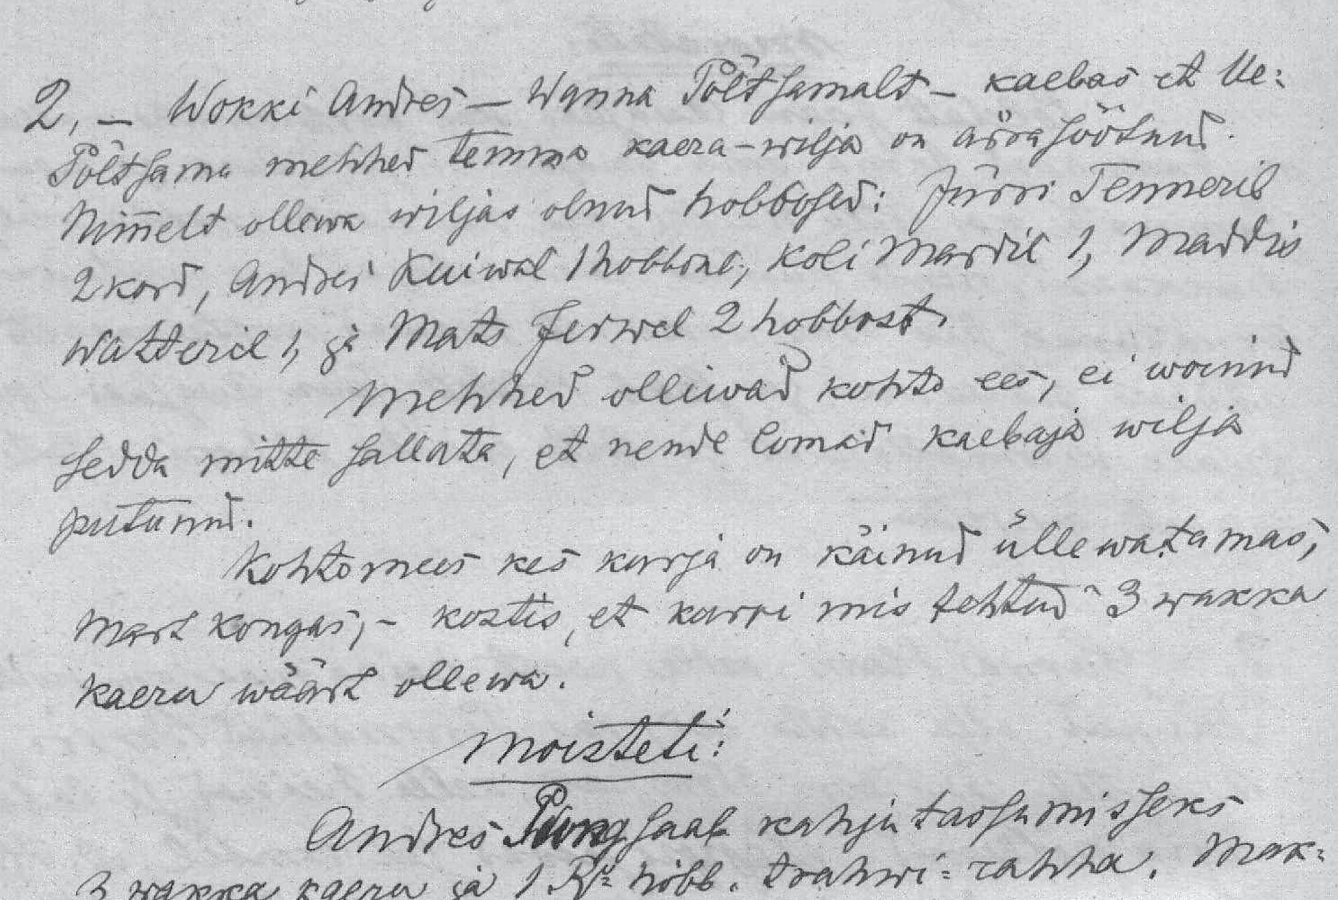 2, — Wokki Andres — Wanna Põltsamalt — kaebas et Ue-
Põltsama mehhed temma kaera-wilja on ärasöötnud.
Nimmelt ollewa wiljas olnud hobbosed: Jürri Tenneril
2 kord, Andres Kuiwal 1 hobbone, Koli Mardil 1, Maddis
Watteril 1, ja Mats Jerwel 2 hobbost.
Mehhed olliwad kohto ees, ei woinud
sedda mitte sallata, et nende lomad kaebaja wilja
putunud.
Kohtomees kes kurja on käinud üllewatamas,
Mart Kongas, — kostis, et kurri mis tehtud 3 wakka
kaera wäärt ollewa.
Moisteti:
Andres Pung saab kahju tassumisseks
3 wakka kaera ja 1 Rbl hõbb. trahwi-rahha. Mak-